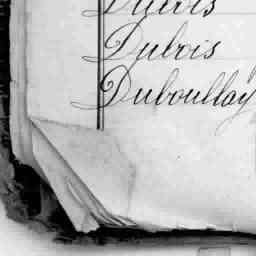 Dubois
Duboullay